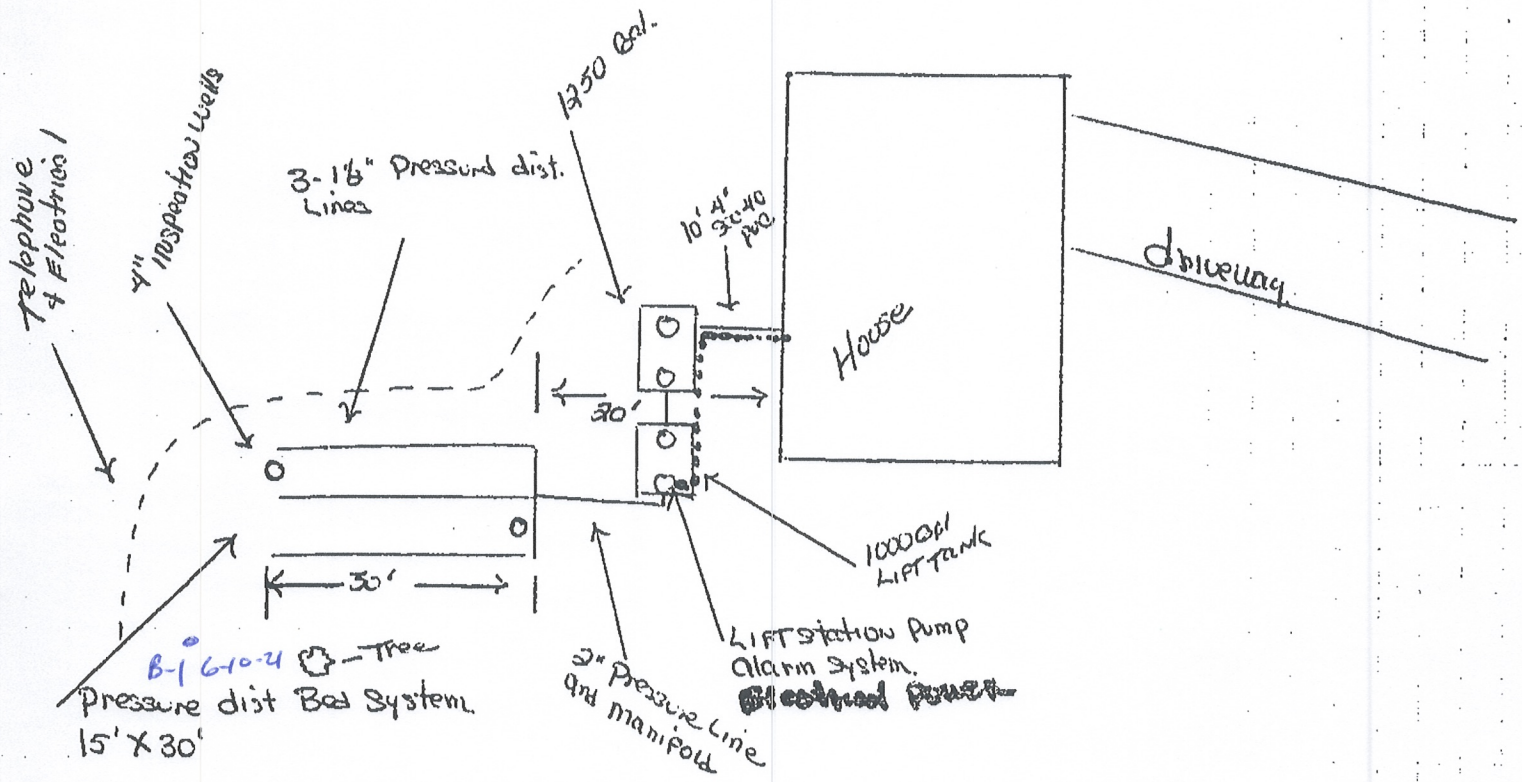 1250 Gal.
Telephone
& Electrical
4" Inspection wells
3-1½" Pressure dist.
Lines
10' 4"
40
pvc
driveway
House
20'
30'
1000 Gal
LIFT Tank
LIFT station Pump
alarm system.
2" Pressure Line
and manifold
B-1 6-10-21
-Tree
Pressure dist Bed System.
15' X 30'